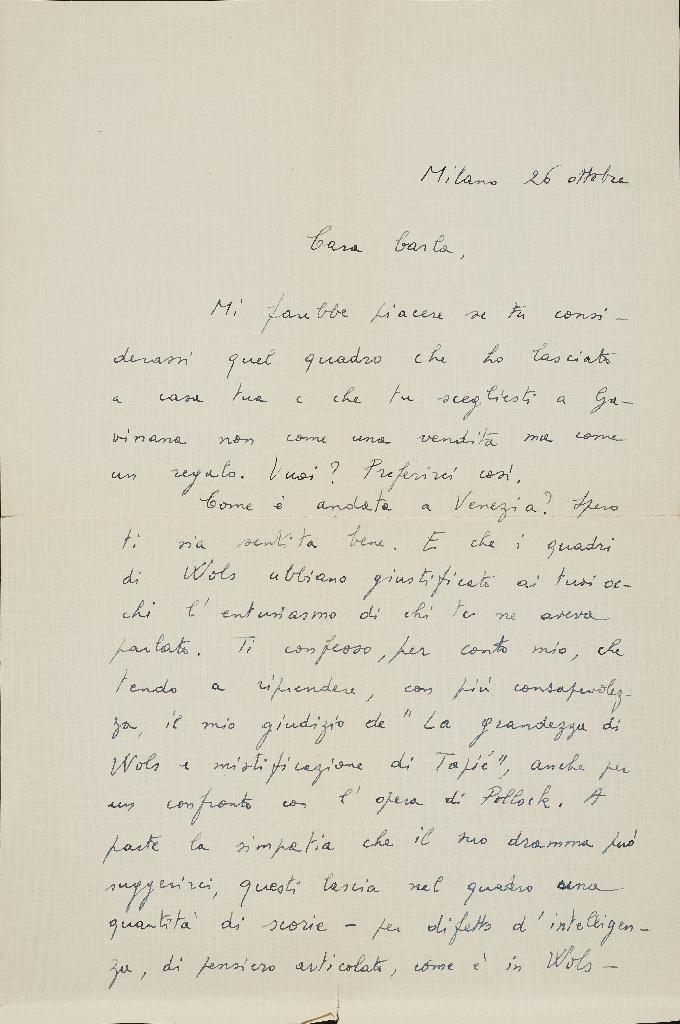 Milano 26 ottobre
Cara Carla,
Mi farebbe piacere se tu consi-
derassi quel quadro che ho lasciato
a casa tua e che tu scegliesti a Ga-
vinana non come una vendita ma come
un regalo. Vuoi? Preferirei così.
Come è andata a Venezia? Spero
ti sia sentita bene. E che i quadri
di Wols abbiano giustificato ai tuoi oc-
chi l'entusiasmo di chi te ne aveva
parlato. Ti confesso, per conto mio, che
tendo a riprendere, con più consapevolez-
za, il mio giudizio de "La grandezza di
Wols e mistificazione di Tapié", anche per
un confronto con l'opera di Pollock. A
parte la simpatia che il suo dramma può
suggerirci, questi lascia nel quadro una
quantità di scorie - per difetto d'intelligen-
za, di pensiero articolato, come è in Wols -